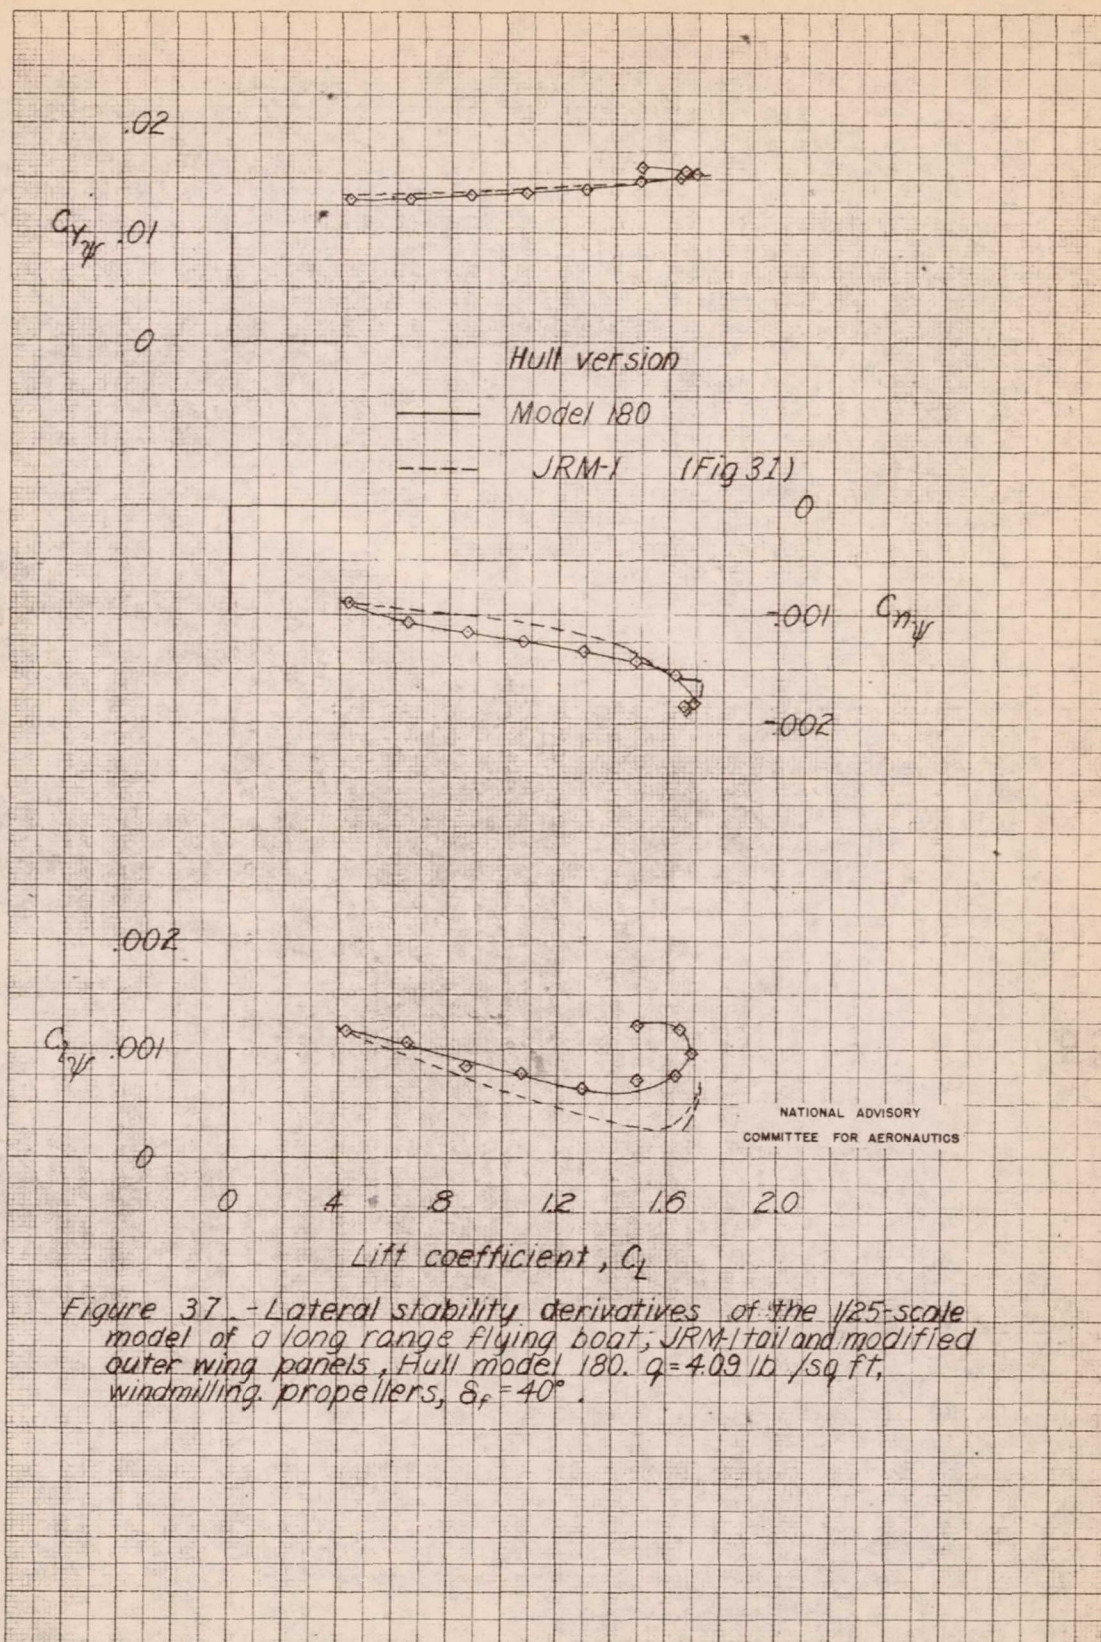 .02
CYψ .01
0
Hull version
Model 180
JRM-1 (Fig 31)
0
-.001 Cnψ
-.002
.002
Clψ .001
0
NATIONAL ADVISORY
COMMITTEE FOR AERONAUTICS
0 .4 .8 1.2 1.6 2.0
Lift coefficient, CL
Figure 37.-Lateral stability derivatives of the 1/25-scale
model of a long range flying boat; JRM-1 tail and modified
outer wing panels, Hull model 180. q=4.09 lb/sq ft,
windmilling propellers, δf=40°.